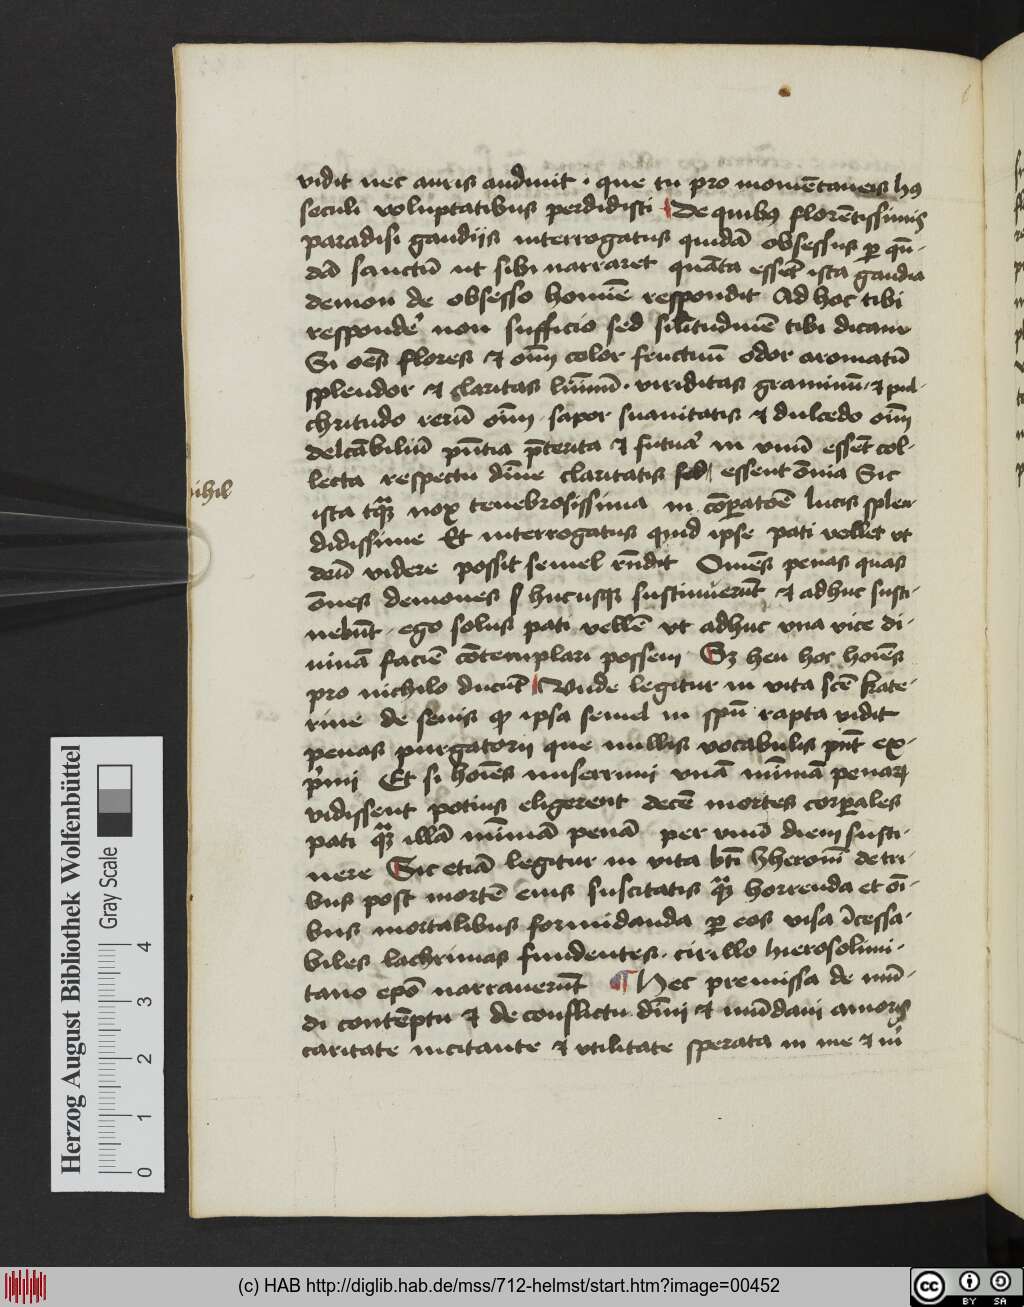 vidit nec auris audiuit · que tu pro momētaneis hꝰ
seculi voluptatibus perdidisti De quibꝰ florētissimis
paradisi gaudijs interrogatus quidā obsessus ꝑ quē-
dā sanctū ut sibi narraret quāta essēt ista gaudia
demon de obsesso homīe respondit Ad hoc tibi
respondē non sufficio sed silitudinē tibi dicam
Si oēs flores et oīm color fructuū odor aromatū
splendor et claritas lumīnū · viriditas graminū · et pul-
chritudo rerū oīm · sapor suauitatis et dulcedo oīm
delcābiliū pn̄tia p̄terita et futura in vnū essēt col-
lecta respectu diuīe claritatis essent ōnia Sic
ista tꝙ̄ nox tenebrosissima in cōꝑatōe lucis splen
didissime Et interrogatus quid ipse pati vellet vt
deū videre possit semel rn̄dit Omēs penas quas
ōnes demones hucusqꝫ sustinuerūt et adhuc susti-
nebūt · ego solus pati vellē vt adhuc vna vice di-
uinā faciē cōtemplari possem Sꝫ heu hoc hoīes
pro nichilo ducūt Vnde legitur in vita scē kate-
rine de senis ꝙ ipsa semel in spū rapta vidit
penas purgatorij que nullis vocabulis pn̄t ex-
p̄mi Et si hoīes miserrimi vnā mīmā penaꝝ
vidissent potius eligerent decē mortes corꝑales
pati ꝙ̄ illā mīmā penā per vnū diem susti-
nere Sic etiā legitur in vita bt̄i Jheronī de tri-
bus post mortē eius suscitatis ꝙ̄ horrenda et oī-
bus mortalibus formidanda ꝑ eos visa īcessa-
biles lachrimas fundentes · cirillo hierosolimi-
tano epō narrauerūt ¶ Hec premissa de mū-
di contēptu et de conflictu diuīni et mūdani amoris
caritate incitante et vtilitate sperata in me et in
ihil
Herzog August Bibliothek Wolfenbüttel
Gray Scale
0 1 2 3 4
(c) HAB http://diglib.hab.de/mss/712-helmst/start.htm?image=00452
cc BY SA